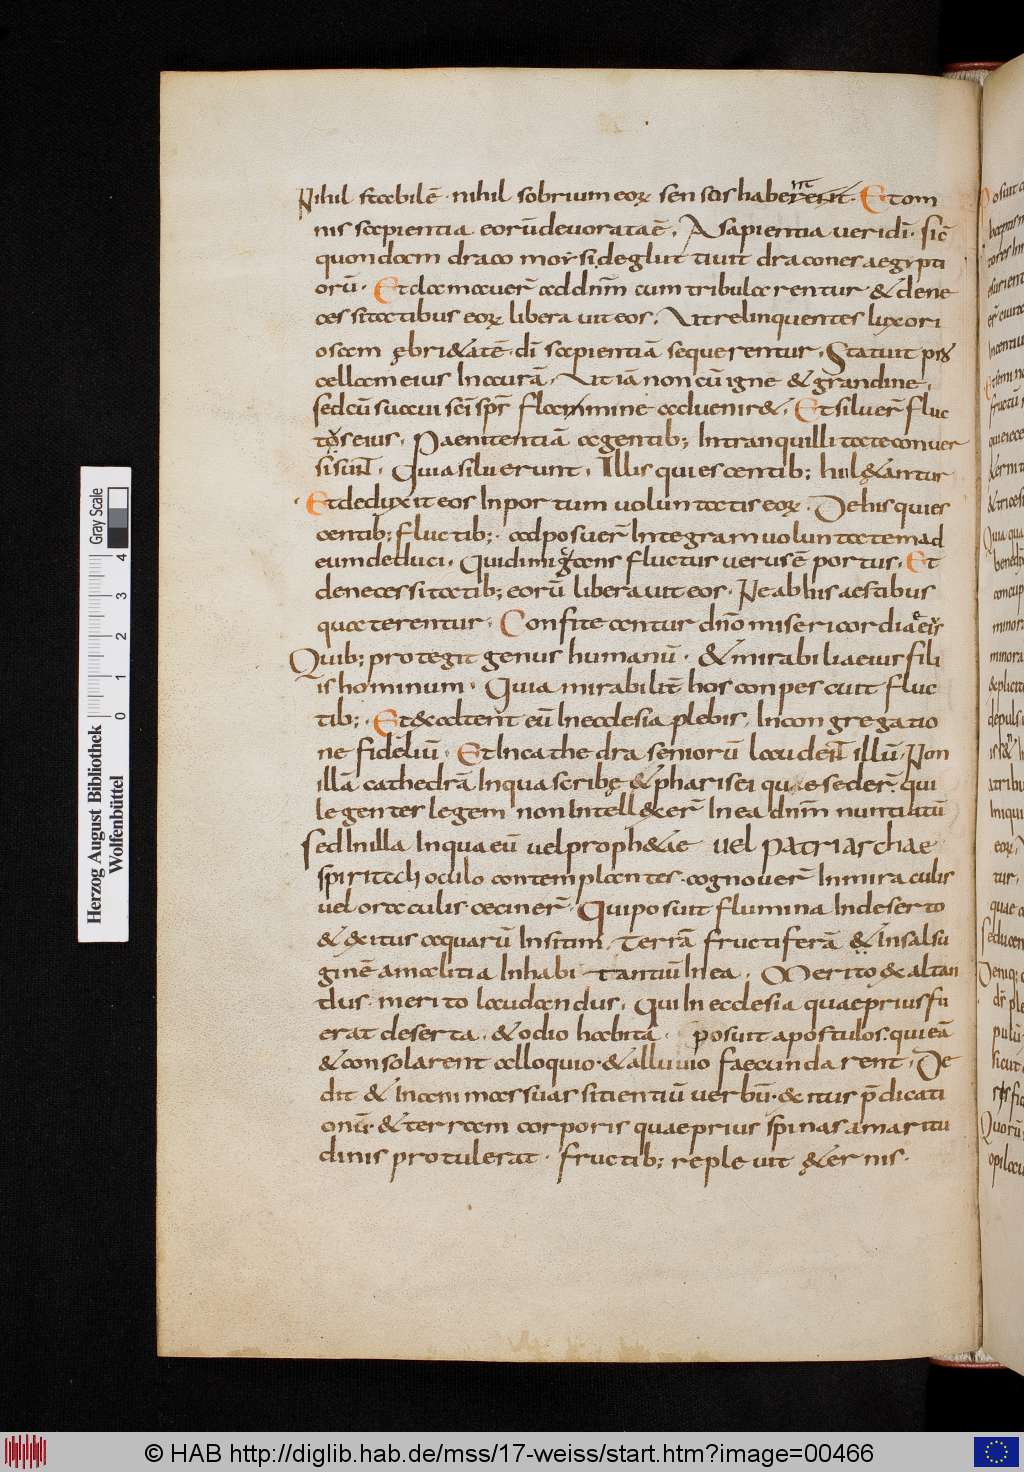 Nihil stabilē · nihil sobrium eoꝝ sensus habe · Et om
nis sapientia eorū deuorata ē · A sapientia ueri dī · sic̄
quondam draco moysi deglut tiuit dracones aegypti
orū · Et clamauer̄ ad dnm̄ cum tribularentur · & de ne
cessitatibus eoꝝ liberauit eos · Ut relinquentes luxori
osam ębri&atē · dī sapientiā sequerentur · Statuit
cellam eius In aurā · Ut iā non cū igne & grandine ·
sed cū suaui sc̄i sp̄s flammine adueniret · Et siluer̄ fluc
tus eius · Paenitentiā agentib; In tranquillitate conuer
si sun̄t · Quia siluerunt · Illis quiescentib; hul&antur
Et deduxit eos In portum uoluntatis eoꝝ · De his quies
centib; fluctib; · ad posuer̄ Integram uoluntatem ad
eum deduci · Qui dimigrans fluctus uerus ē portus · Et
de necessitatib; eorū liberauit eos · Ne ab his aestibus
quaterentur · Confiteantur dn̄o misericordiae eius
Quib; protegit genus humanū · & mirabilia eius fili
is hominum · Quia mirabilit̄ hos conpescuit fluc
tib; · Et exaltent eū In ecclesia plebis · In congregatio
ne fidéliū · Et In cathedra seniorū laudent̄ illū · Non
illā cathedrā In qua scribę & pharisei quae seder̄ · qui
legenter legem non Intell&er̄ In ea dnm̄ nuntiatū
sed In illa In qua eū uel proph&ae uel patriarchae
spiritali oculo contemplantes · cognouer̄ In miraculis
uel oraculis ceciner̄ · Qui posuit flumina In deserto
& exitus aquarū In sitim · Terrā fructiferā & In salsu
ginē a malitia Inhabitantiū In ea · Merito & altan
dus · merito laudandus · Qui In ecclesia quae prius fu
erat deserta · & odio habita · posuit apostolos · qui eā
& consolarent alloquio · & alluuio faecundarent · De
dit & In animas suas sitientiū uerbū · exitus p̄dicati
onū · & terram corporis quae prius spinas amaritu
dinis protulerat · fructib; repleuit &ernis ·
Herzog August Bibliothek
Wolfenbüttel
Gray Scale
0 1 2 3 4
© HAB http://diglib.hab.de/mss/17-weiss/start.htm?image=00466